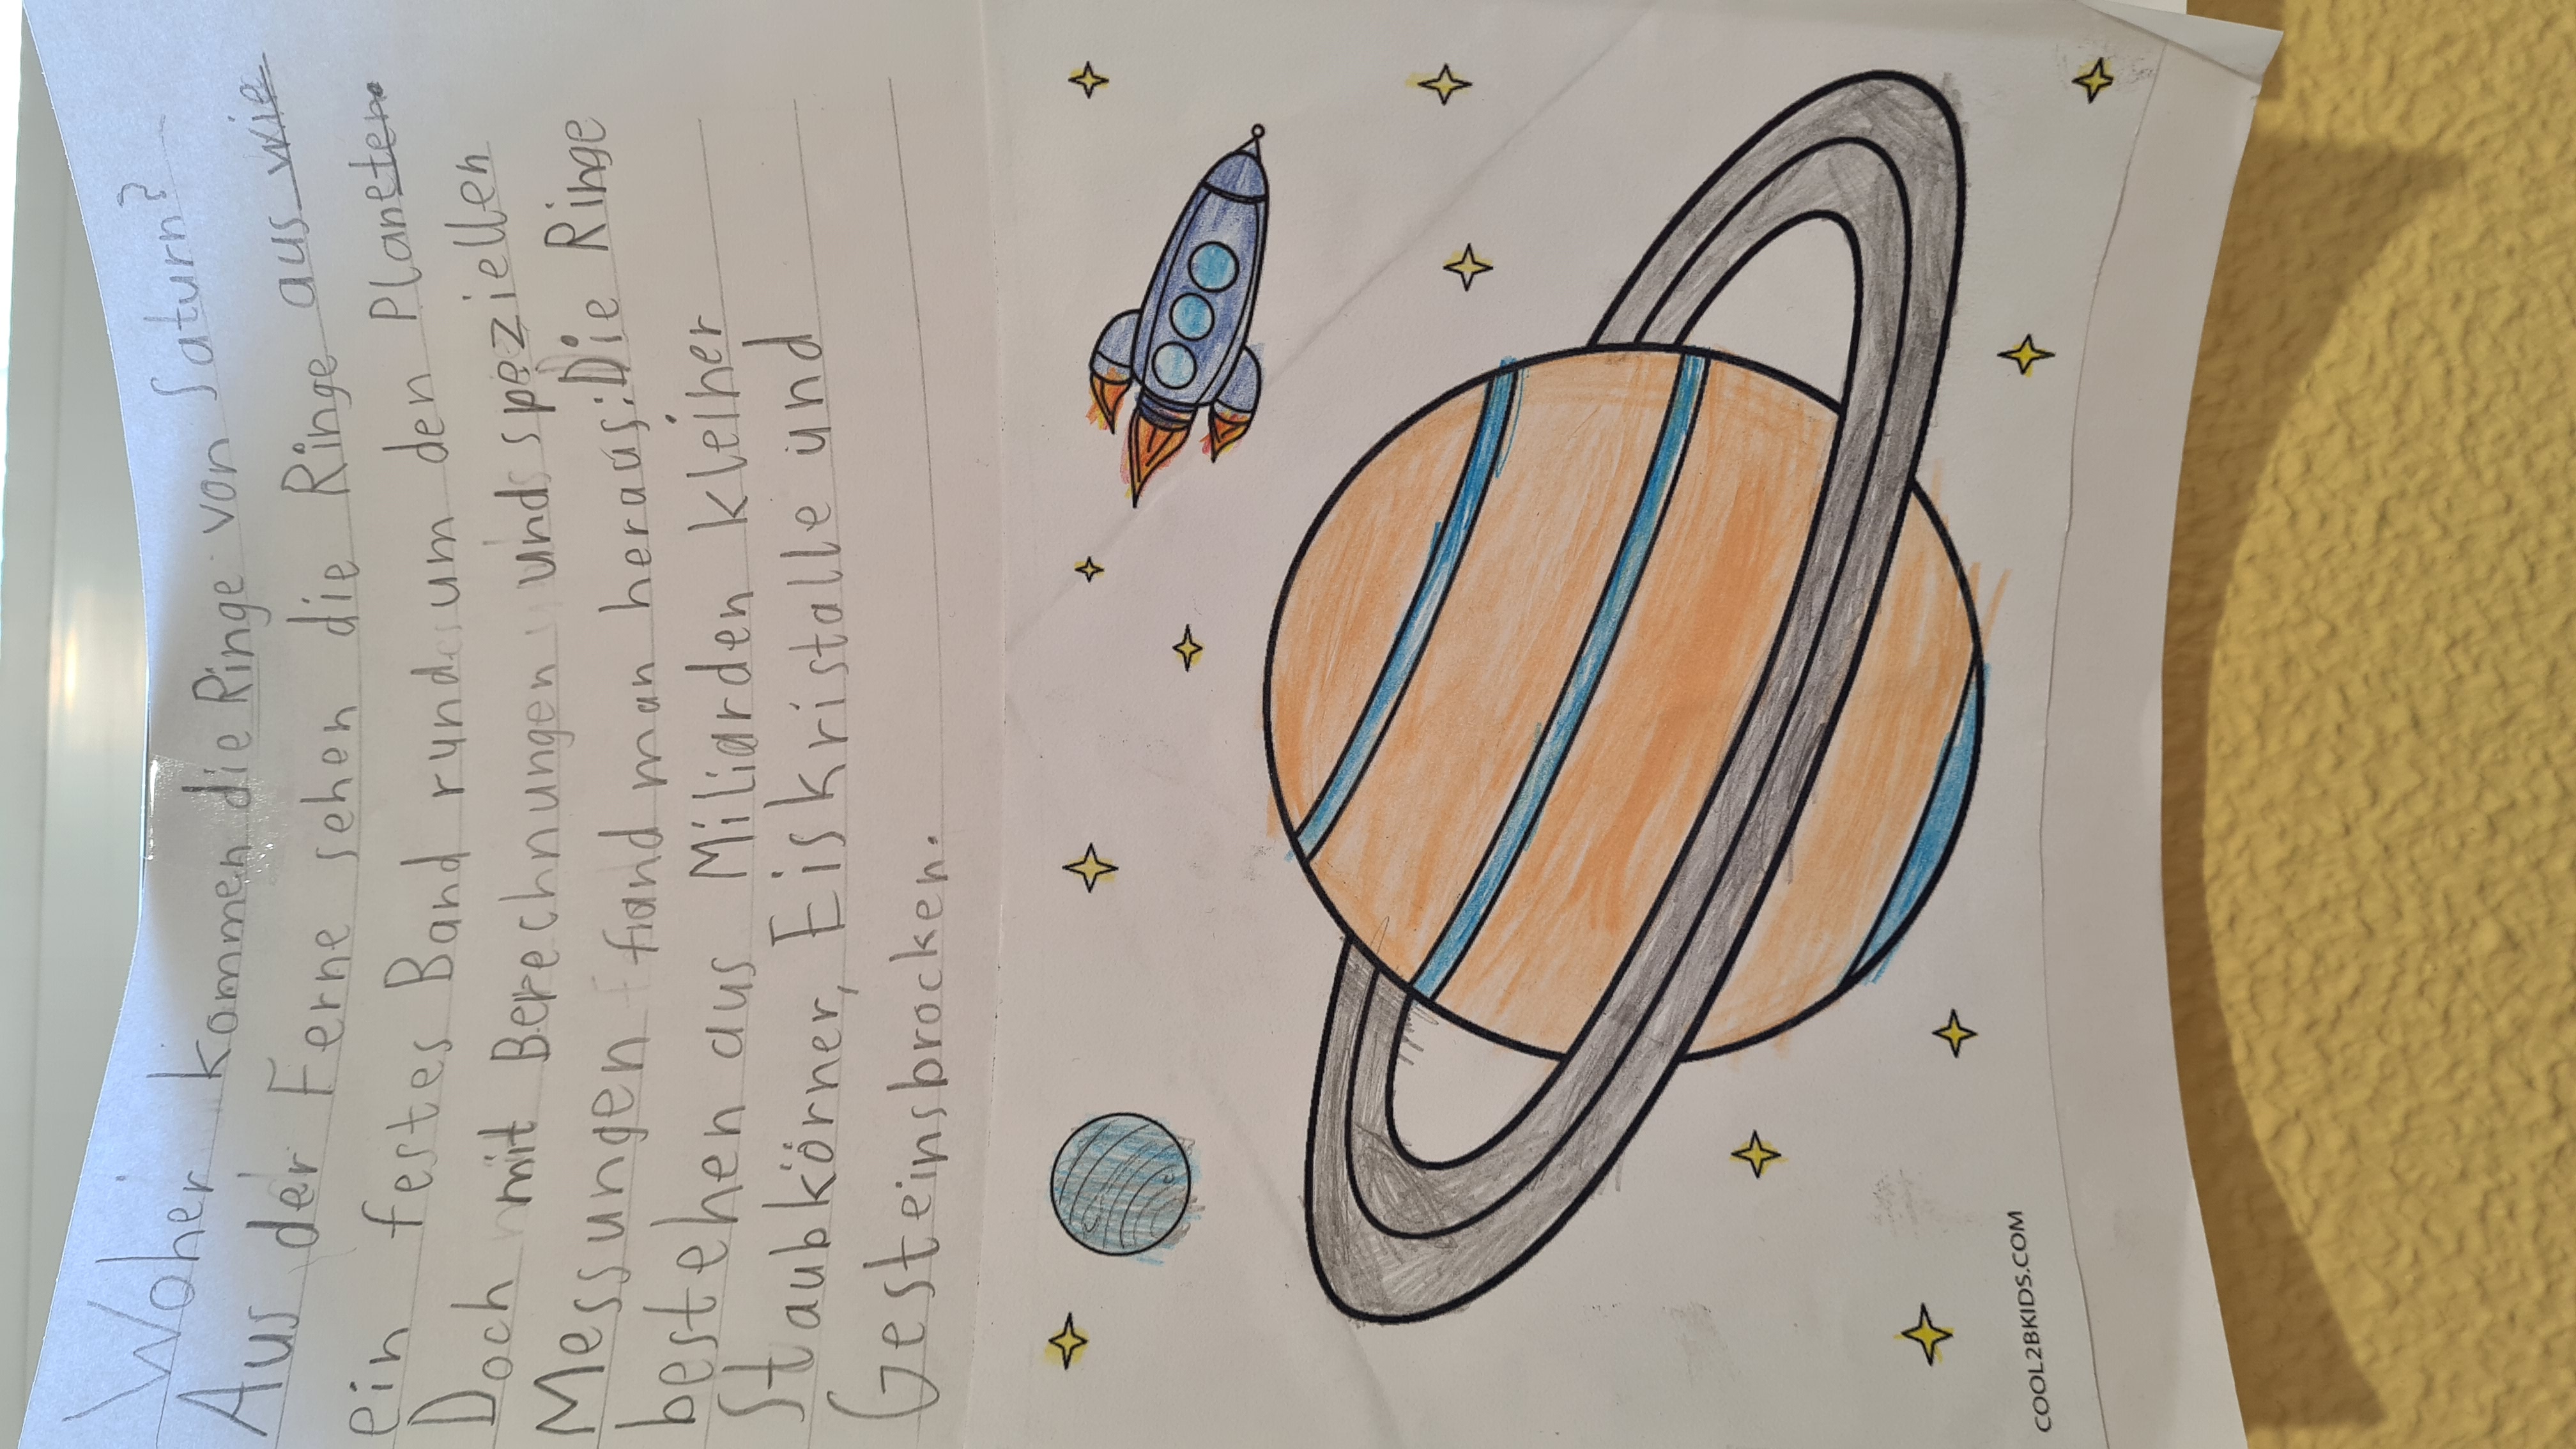 Woher kommen die Ringe von Saturn?
Aus der Ferne sehen die Ringe aus wie
ein festes Band rund um den Planeten
Doch mit Berechnungen und speziellen
Messungen fand man heraus: Die Ringe
bestehen aus Miliarden kleiner
Staubkörner, Eiskristalle und
Gesteinsbrocken.
COOL2BKIDS.COM